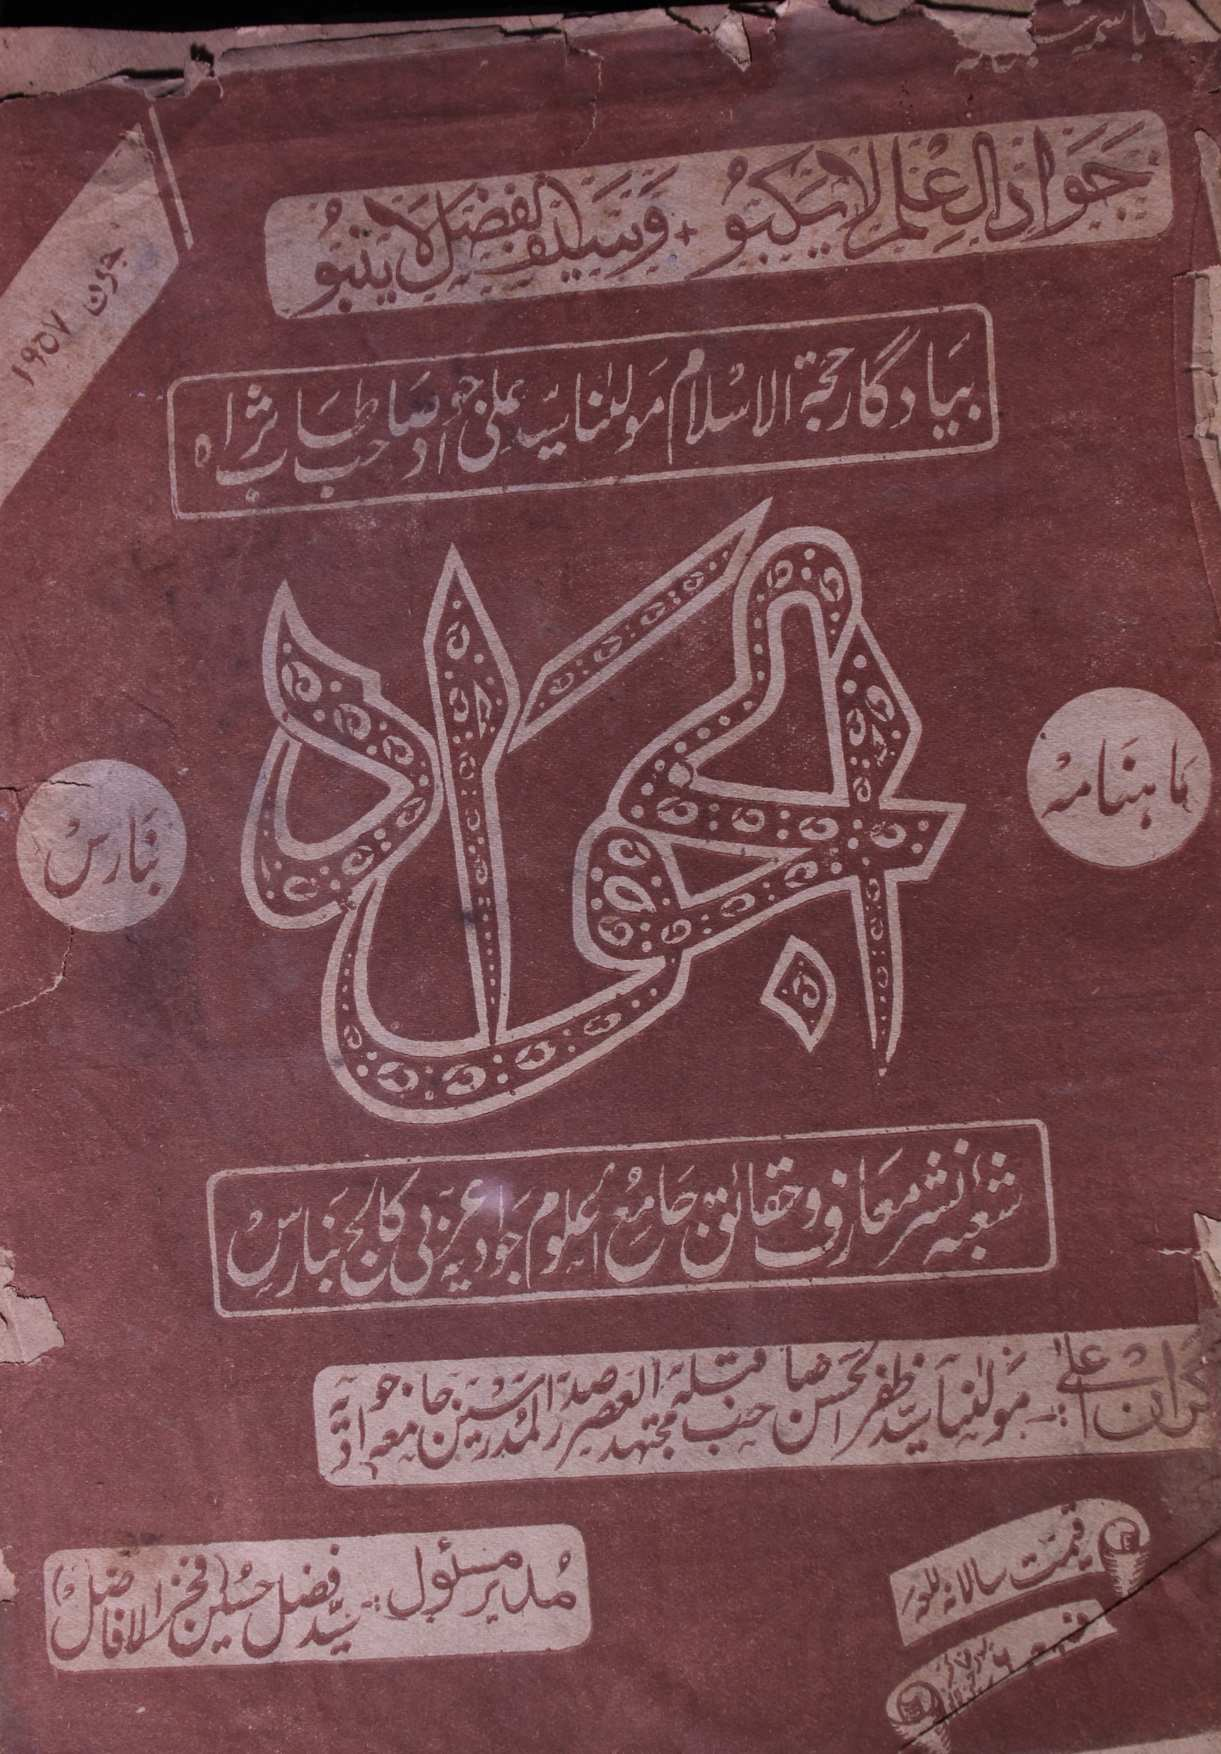 باسمہ سبحانہ
جَوَادُ الْعِلْمِ لَا یَکْبُو + وَسَیْفُ الْفَضْلِ لَا یَنْبُو
جون ۱۹۵۷
بیادگار حجۃ الاسلام مولٰنا سید علی جواد صاحب طاب ثراہ
الجواد
ماہنامہ
بنارس
شعبۂ نشر معارف و حقائق جامع العلوم جوادیہ عربی کالج بنارس
نگران اعلیٰ :- مولٰنا سید ظفر الحسن صاحب قبلہ مجتہد العصر صدر المدرسین جامعہ جوادیہ
مدیر مسئول :- سید فضل حسین (فخر الافاضل)
قیمت سالانہ